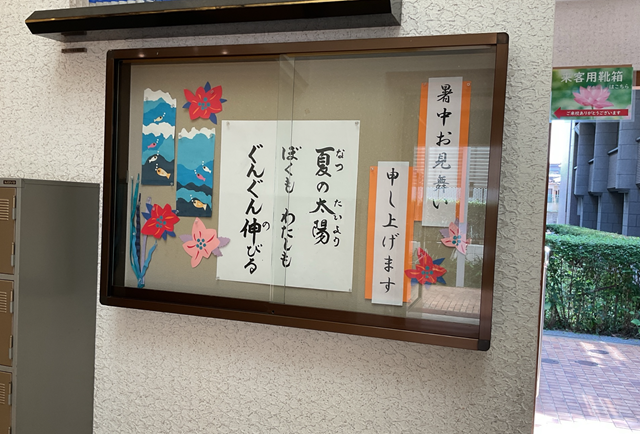 暑中お見舞い
申し上げます
夏の太陽
なつ
たいよう
ぼくも わたしも
ぐんぐん伸びる
の
来客用靴箱
はこちら
ご来校ありがとうございます